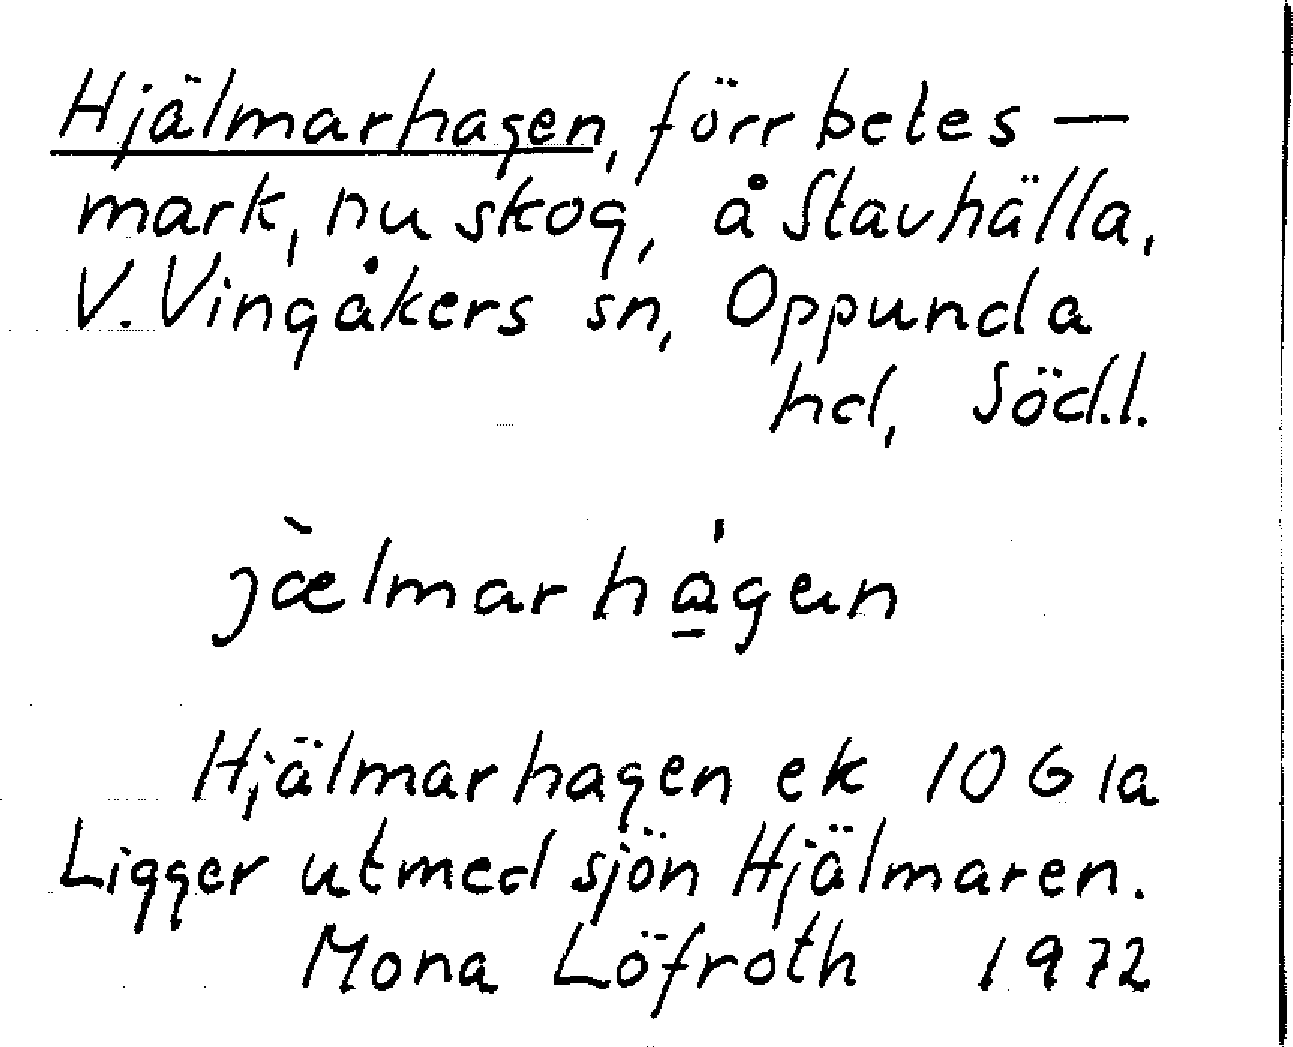 Hjälmarhagen, förr betes—
mark, nu skog, å Stavhälla,
V. Vingåkers sn, Oppunda
hd, Söd.l.
jæ̀lmarhá̱gen
Hjälmarhagen ek 10 G 1a
Ligger utmed sjön Hjälmaren.
Mona Löfroth 1972